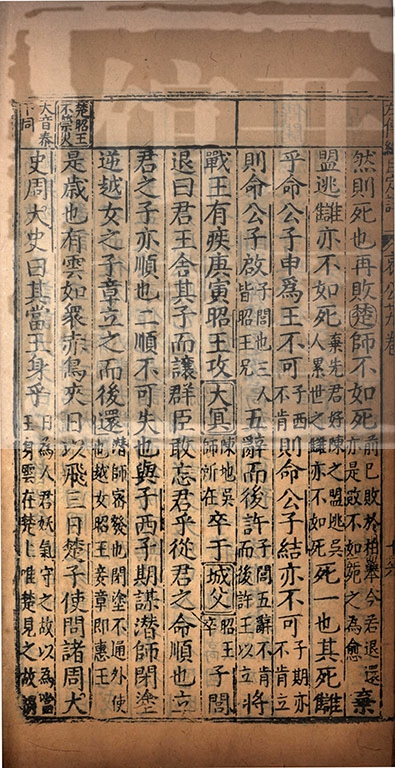 然則死也再敗楚師不如死前已敗於柏舉今若退還亦是敗不如死之為愈棄
盟逃讎亦不如死棄先君好陳之盟逃吳人累世之讎亦不如死死一也其死讎
乎命公子申為王不可子西不肯則命公子結亦不可子期亦不肯立
則命公子啟子閭也三人皆昭王兄五辭而後許子閭五辭不肯而後許王以立將
戰王有疾庚寅昭王攻大冥陳地吳師所在卒于城父昭王卒子閭
退曰君王舍其子而讓群臣敢忘君乎從君之命順也立
君之子亦順也二順不可失也與子西子期謀潛師閉塗
逆越女之子章立之而後還潛師密發也閉塗不通外使也越女昭王妾章即惠王
楚昭王
不禜火
是歲也有雲如衆赤鳥夾日以飛三日楚子使問諸周大
大音泰
下同
史周大史曰其當王身乎日為人君妖氣守之故以為當王身雲在楚上唯楚見之故禍